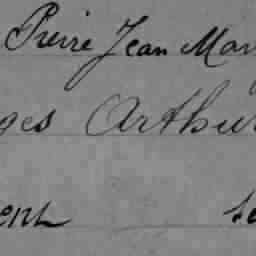 Pierre Jean Mar
ges Arthur
ent se